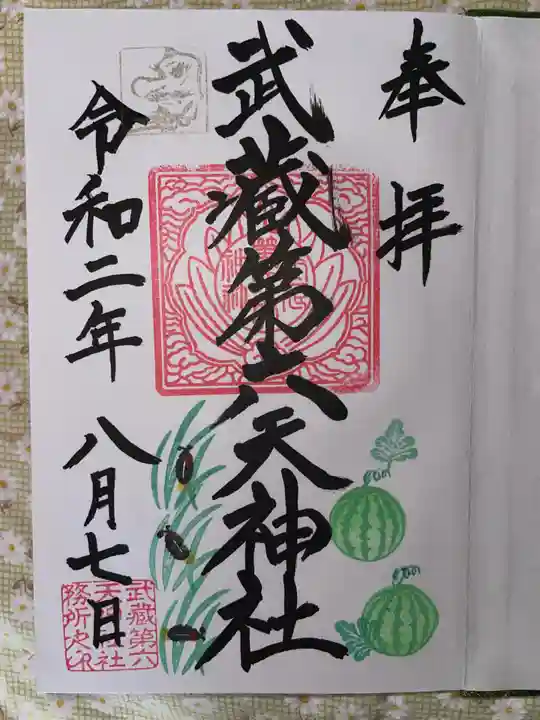 奉拝
武蔵第六天神社
令和二年 八月七日
武蔵第六
天神社社
務所之印